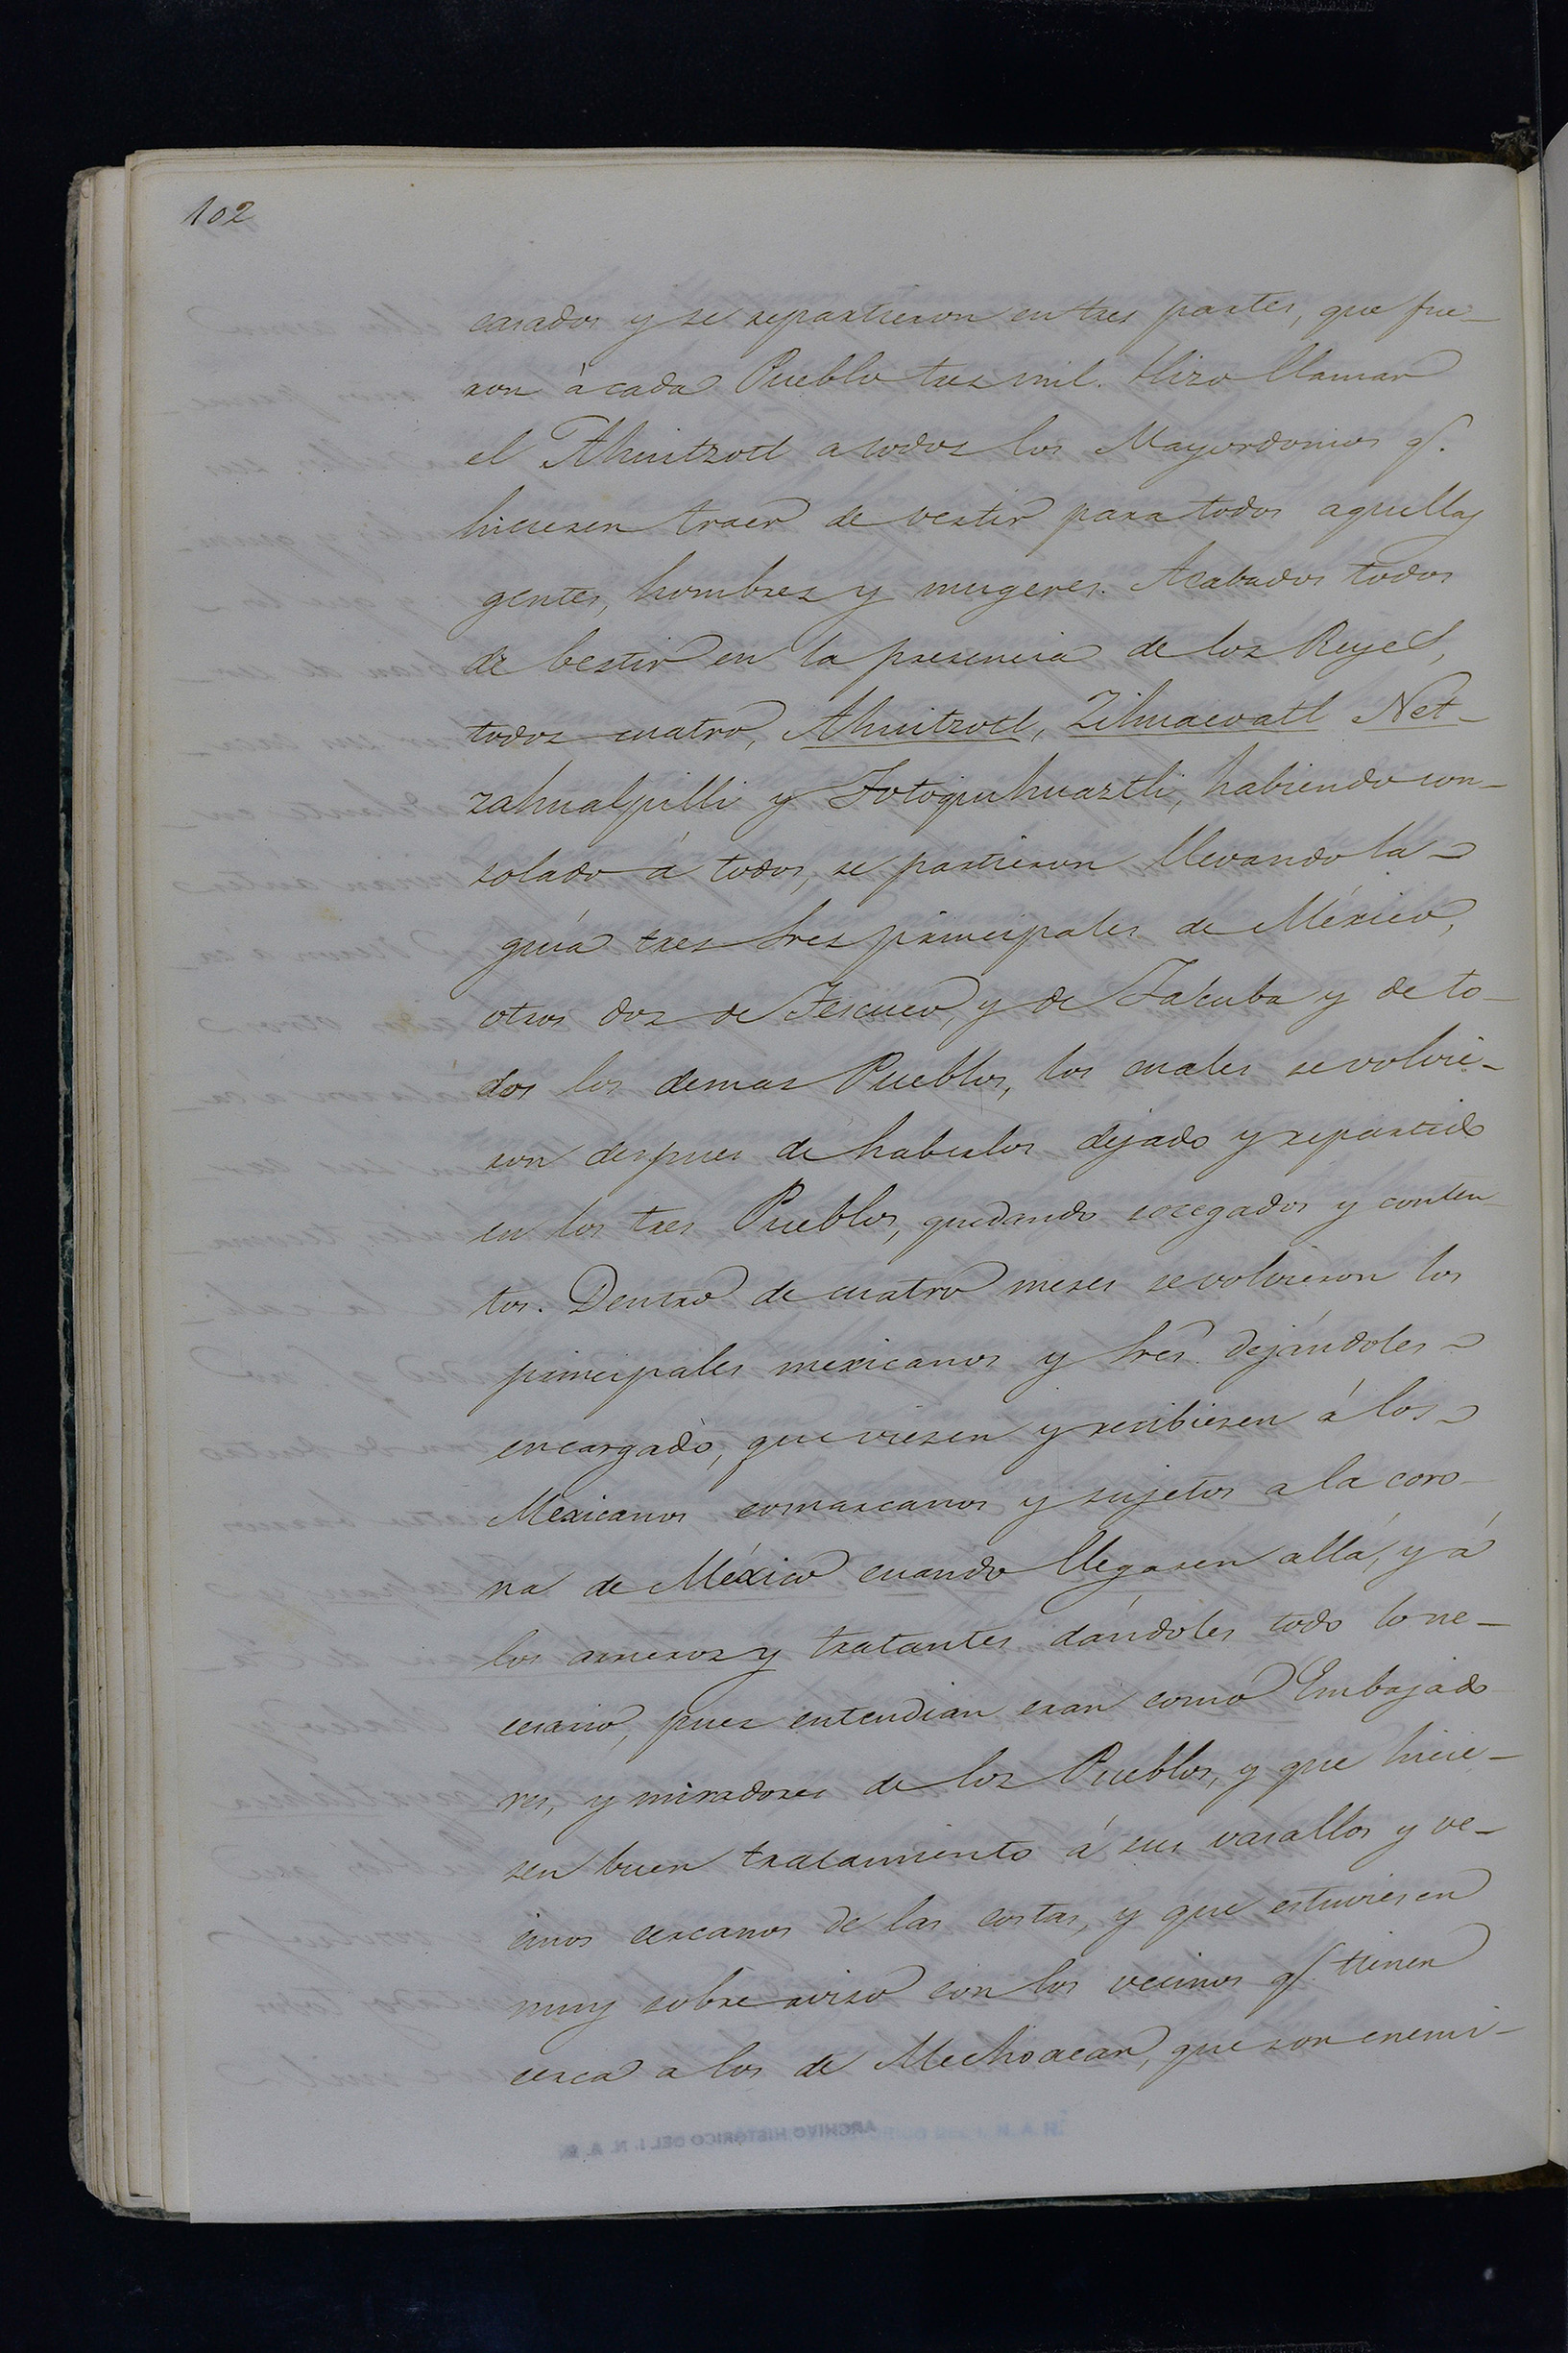 102
casados y se repartieron en tres partes, que fue-
ron à cada Pueblo tres mil. Hizo llamar
el Ahuitzotl a todos los Mayordomos q.
hiciesen traer de vestir para todos aquellas
gentes, hombres y mugeres. Acabados todos
de bestir en la presencia de los Reyes,
todos cuatro, Ahuitzotl, Zihuacoatl Net-
zahualpilli y Totoquihuaztli, habiendo con-
solado á todos, se partieron llevando la
guía tres Sres principales de México,
otros dos de Tescuco, y de Tacuba y de to-
dos los demas Pueblos, los cuales se volvie-
ron despues de haberlos dejado y repartido
en los tres Pueblos, quedando socegados y conten
tos. Dentro de cuatro meses se volvieron los
principales mexicanos y Sres. dejándoles
encargado, que viesen y recibiesen á los
Mexicanos comarcanos y sujetos a la coro-
na de México cuando llegasen allá, y á
los arrieros y tratantes dándoles todo lo ne-
cesario, pues entendian eran como Embajado
res, y miradores de los Pueblos, y que hicie-
sen buen tratamiento á sus vasallos y ve-
cinos cercanos de las costas, y que estuviesen
muy sobre aviso con los vecinos q. tienen
cerca a los de Mechoacan, que son enemi-
ARCHIVO HISTORICO DEL I. N. A. H.